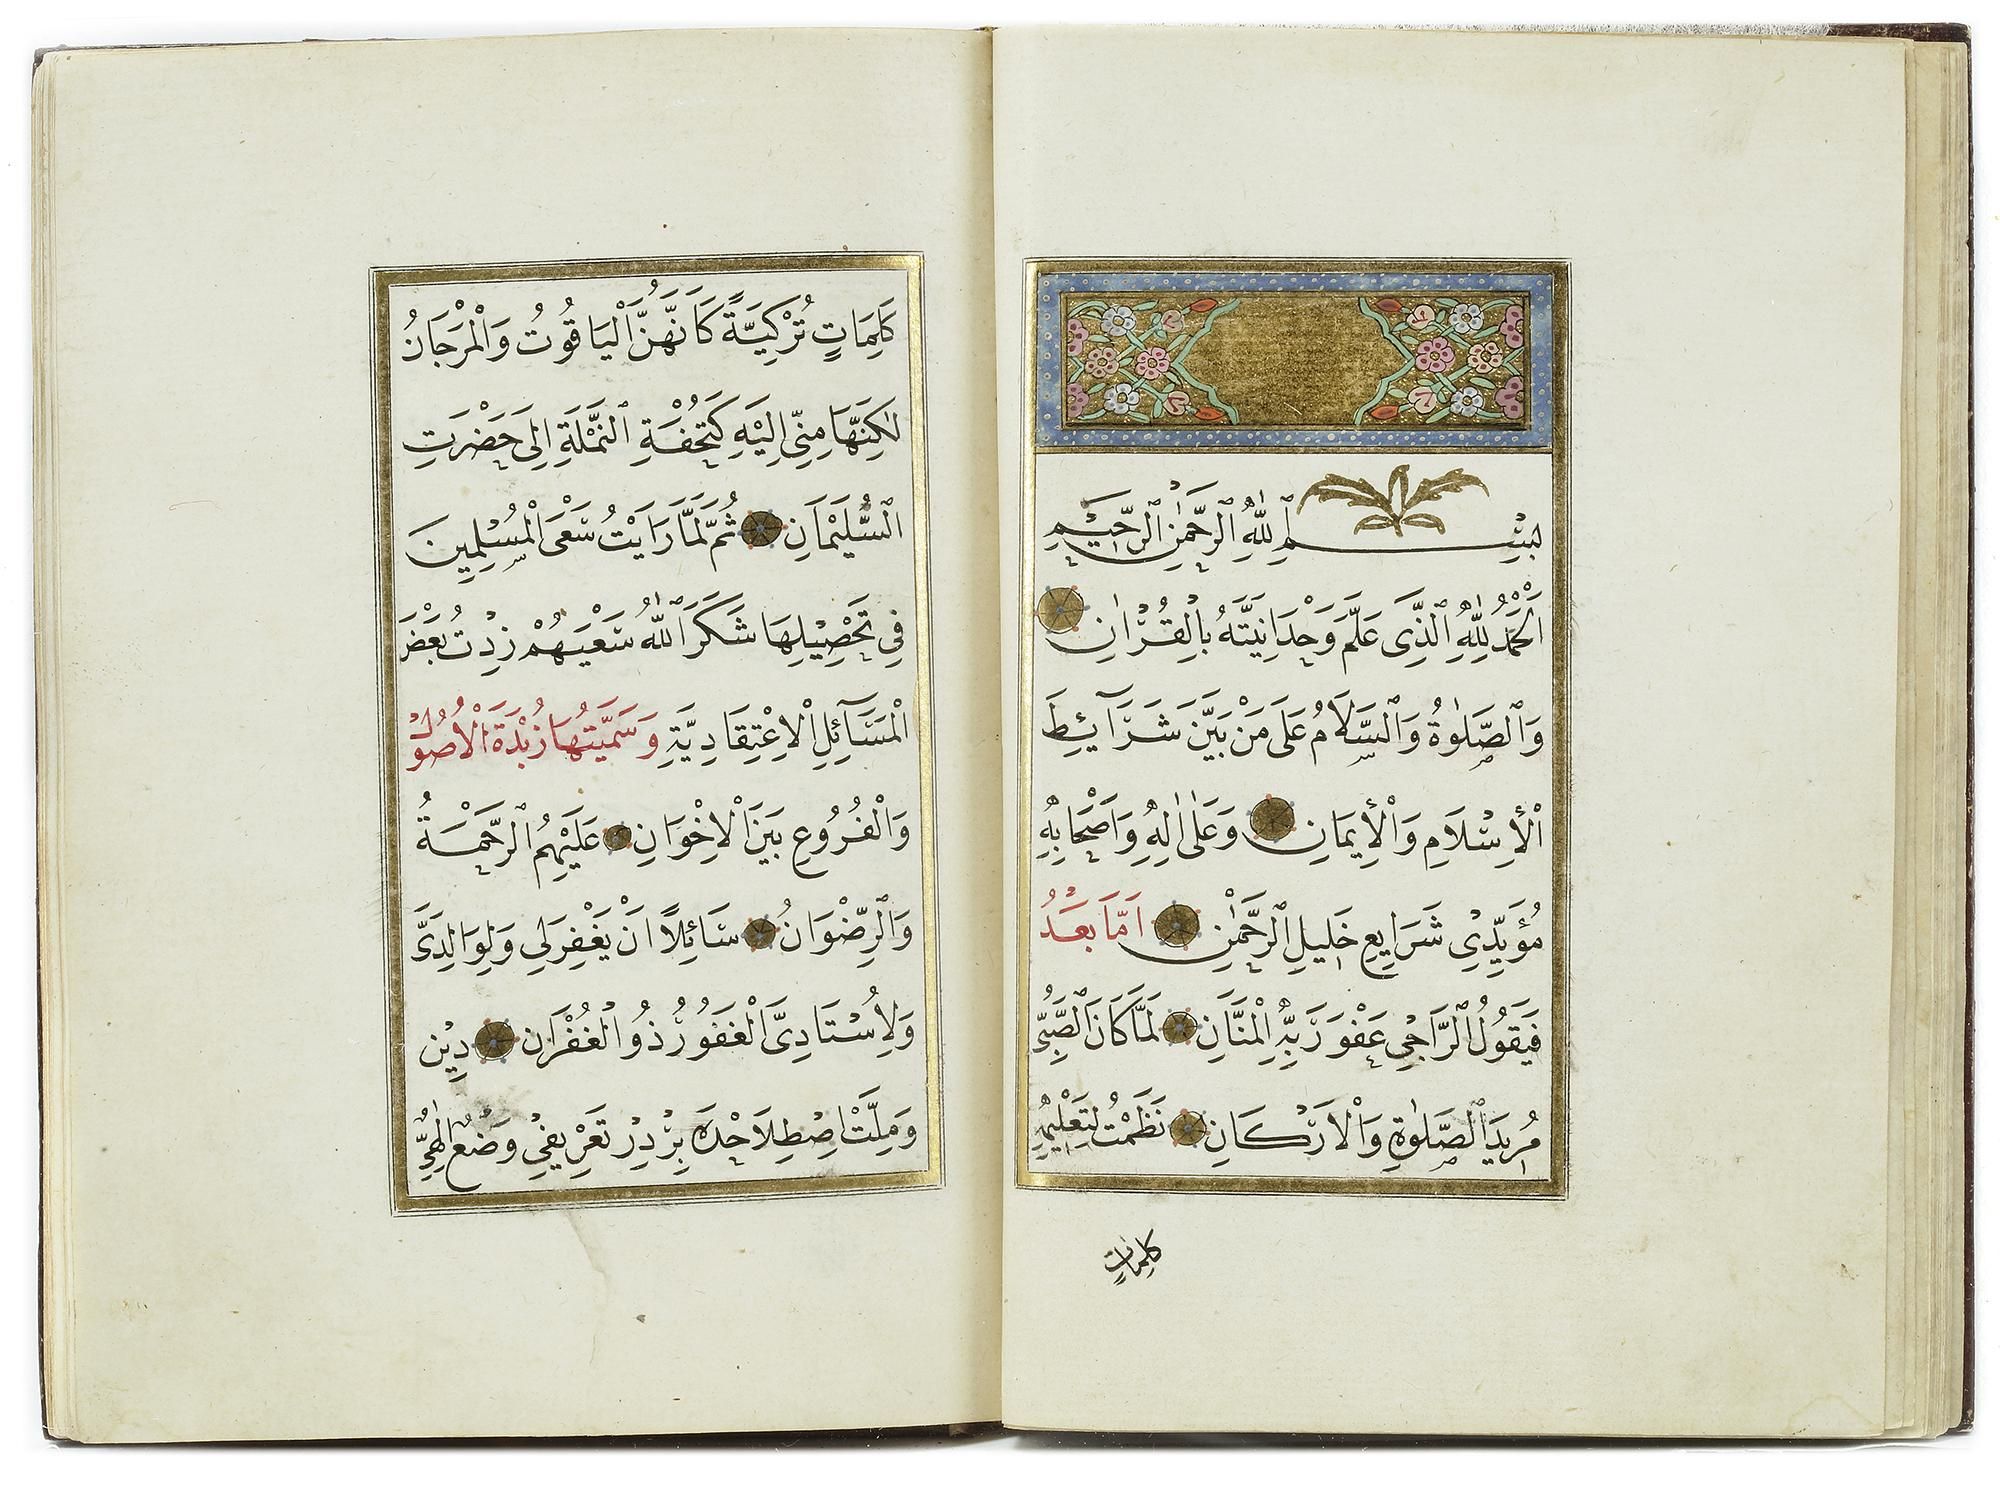 بِسْمِ اللّٰهِ الرَّحْمٰنِ الرَّحِيْمِ
اَلْحَمْدُ لِلّٰهِ الَّذِى عَلَّمَ وَحْدَانِيَّتَهُ بِالْقُرْاٰنِ
وَالصَّلٰوةُ وَالسَّلَامُ عَلَى مَنْ بَيَّنَ شَرَآئِطَ
الْاِسْلَامِ وَالْاِيمَانِ وَعَلٰى اٰلِهِ وَاَصْحَابِهِ
مُؤَيِّدِى شَرَايِعِ خَلِيلِ الرَّحْمٰنِ اَمَّا بَعْدُ
فَيَقُولُ الرَّاجِى عَفْوَ رَبِّهِ الْمَنَّانِ لَمَّا كَانَ الصَّبِىُّ
مُرِيدَ الصَّلٰوةِ وَالْاَرْكَانِ نَظَمْتُ لِتَعْلِيمِهِ
كلمات
كَلِمَاتٍ تُرْكِيَّةً كَاَنَّهُنَّ الْيَاقُوتُ وَالْمَرْجَانُ
لٰكِنَّهَا مِنِّى اِلَيْهِ كَتُحْفَةِ النَّمْلَةِ اِلَى حَضْرَتِ
السُّلَيْمَانِ ثُمَّ لَمَّا رَاَيْتُ سَعْىَ الْمُسْلِمِينَ
فِى تَحْصِيلِهَا شَكَرَ اللّٰهُ سَعْيَهُمْ زِدْتُ بَعْضَ
الْمَسَآئِلِ الْاِعْتِقَادِيَّةِ وَسَمَّيْتُهَا زُبْدَةَ الْاُصُولْ
وَالْفُرُوعِ بَيْنَ الْاِخْوَانِ عَلَيْهِمُ الرَّحْمَةُ
وَالرِّضْوَانُ سَائِلًا اَنْ يَغْفِرَ لِى وَلِوَالِدَىَّ
وَلِاُسْتَادِىَّ الْغَفُورُ ذُو الْغُفْرَانِ دِيْن
وَمِلَّتْ اِصْطِلَاحْدَه بِرْدِرْ تَعْرِيفِىْ وَضْعٌ اِلٰهِىٌّ